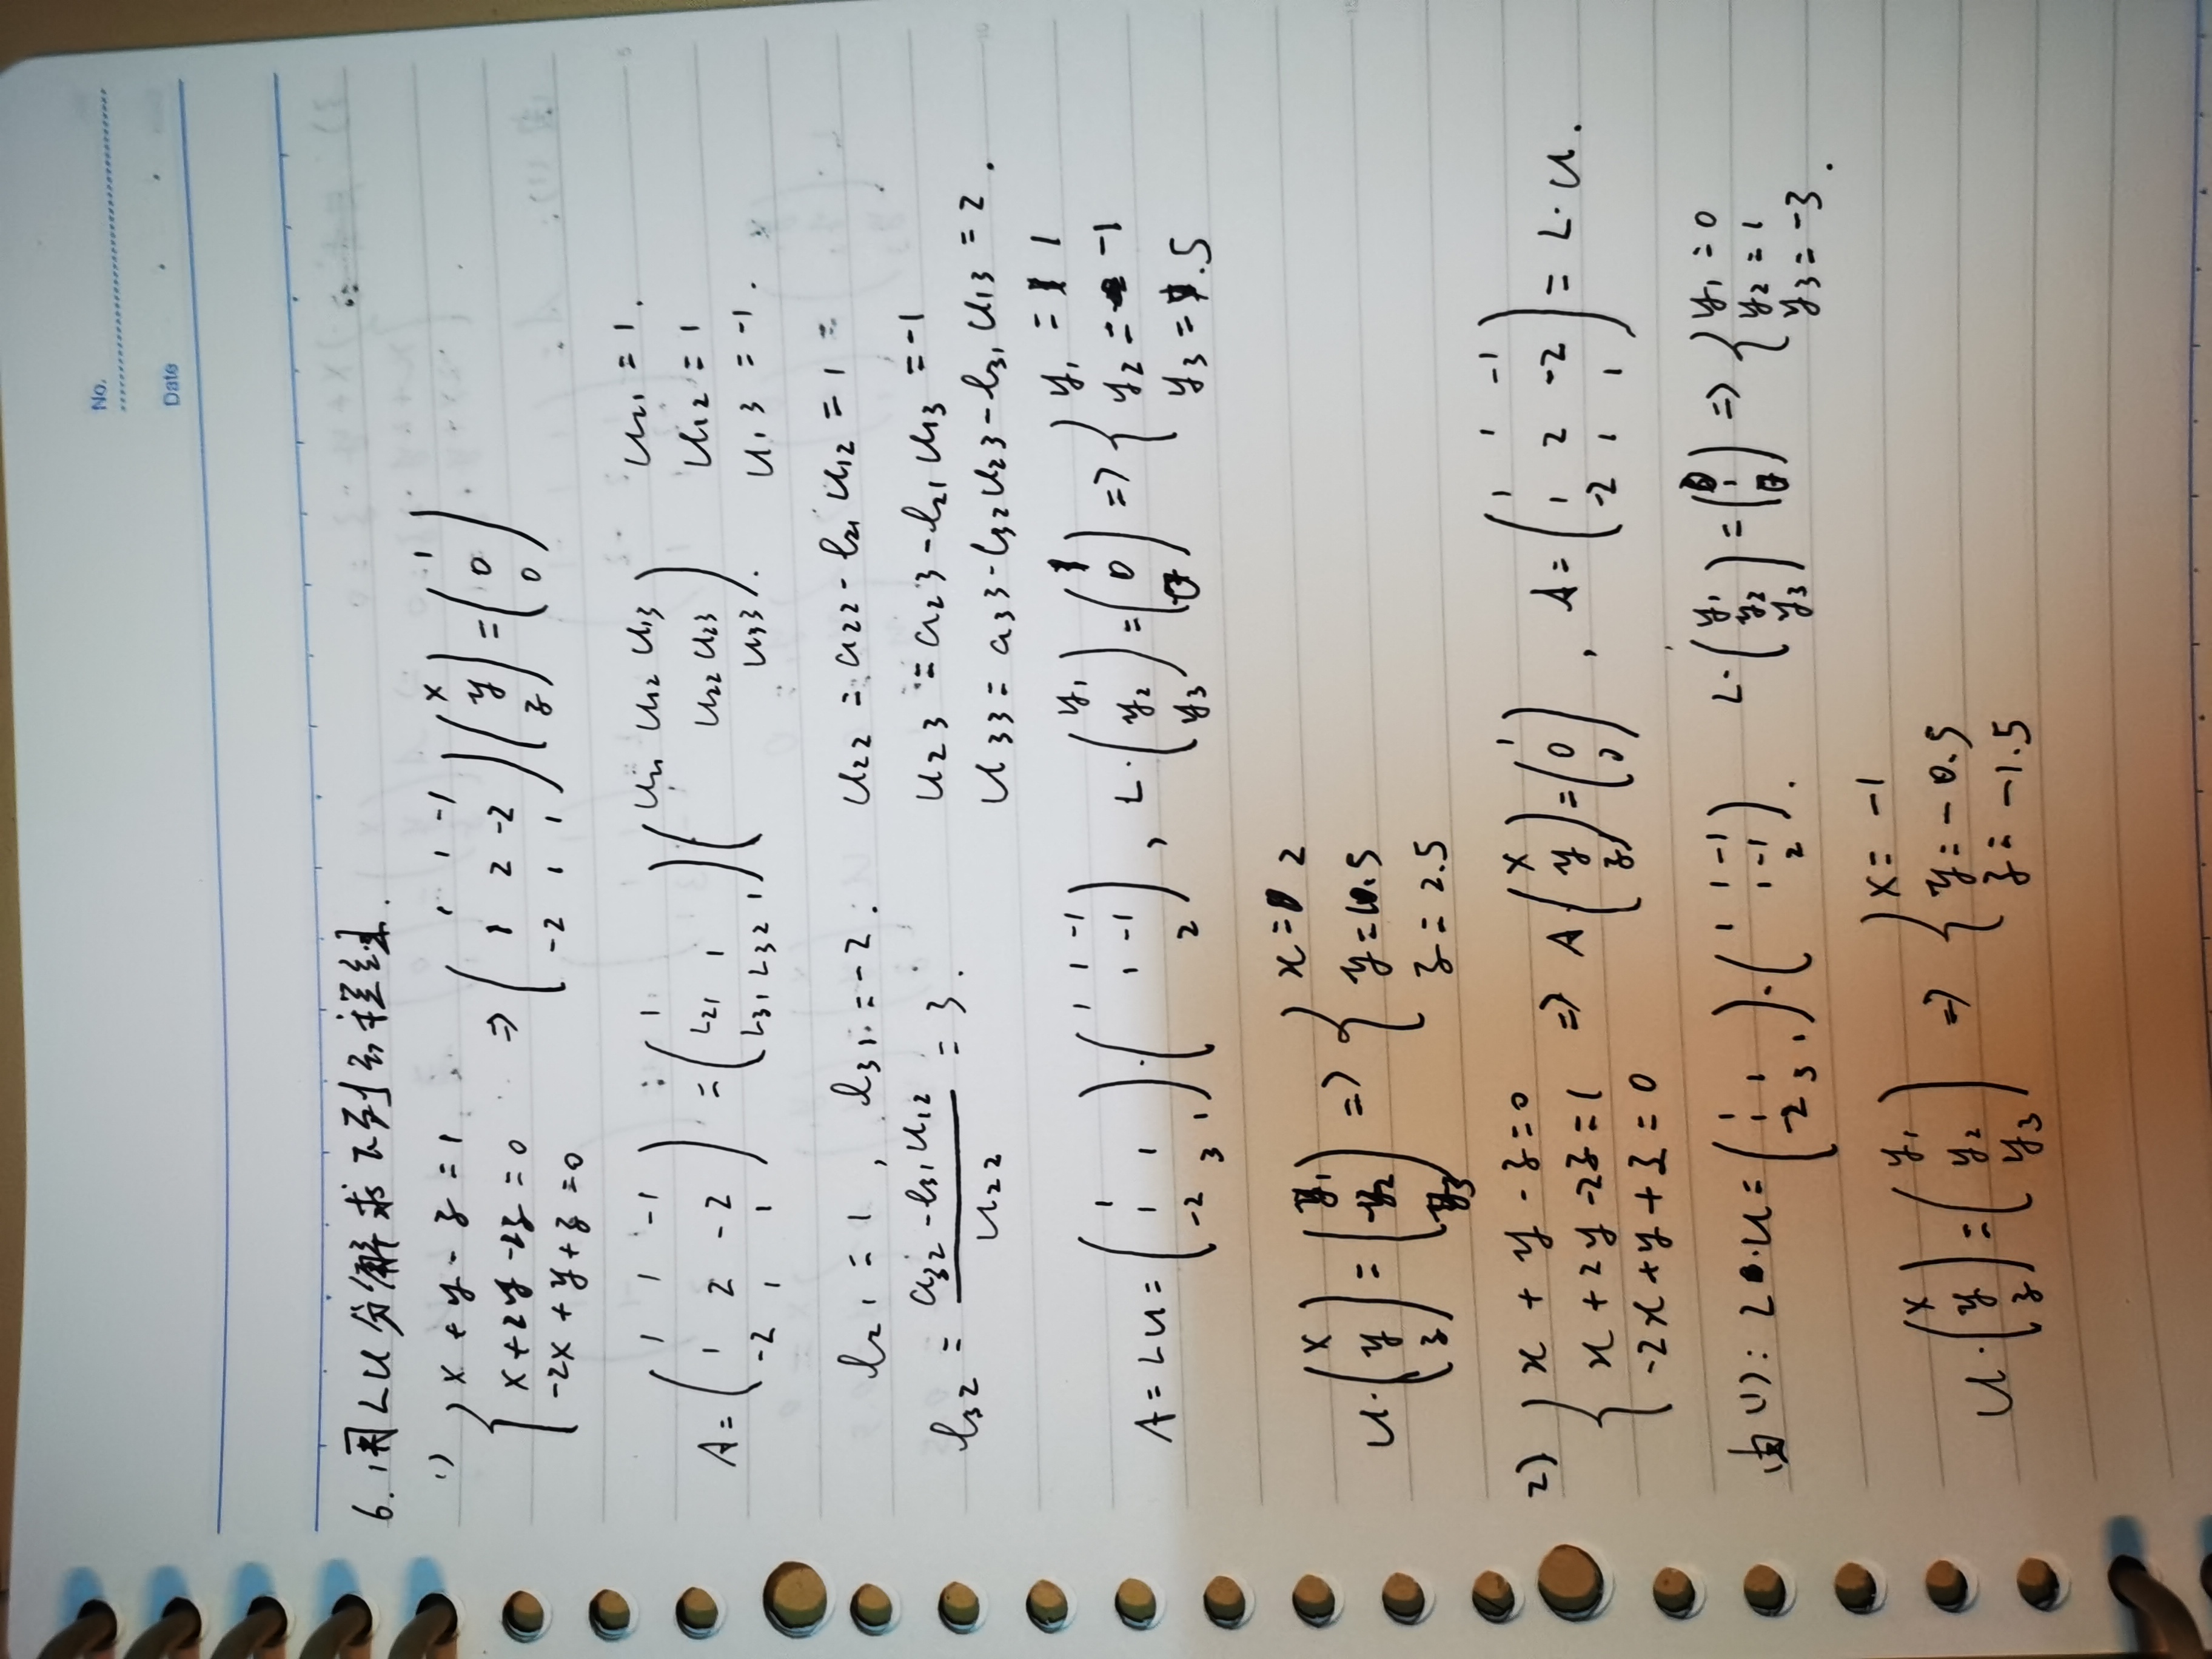 No.
Date
6. 用LU分解求下列方程组.
1) { x + y - z = 1
x + 2y - 2z = 0
-2x + y + z = 0
=> ( 1 1 -1
1 2 -2
-2 1 1 ) ( x
y
z ) = ( 1
0
0 )
A = ( 1 1 -1
1 2 -2
-2 1 1 ) = ( 1
L21 1
L31 L32 1 ) ( U11 U12 U13
U22 U23
U33 ).
U11 = 1.
U12 = 1
U13 = -1.
l21 = 1 , l31 = -2. U22 = a22 - l21 U12 = 1
U23 = a23 - l21 U13 = -1
l32 = a32 - l31 U12 / U22 = 3. U33 = a33 - l32 U23 - l31 U13 = 2.
A = LU = ( 1
1 1
-2 3 1 ) · ( 1 1 -1
1 -1
2 ) , L · ( y1
y2
y3 ) = ( 1
0
0 ) => { y1 = 1
y2 = -1
y3 = .5
U · ( x
y
z ) = ( y1
y2
y3 ) => { x = 2
y = .5
z = 2.5
2) { x + y - z = 0
x + 2y - 2z = 1
-2x + y + z = 0
=> A ( x
y
z ) = ( 1
0
0 ) , A = ( 1 1 -1
1 2 -2
-2 1 1 ) = L · U.
由 1) : L · U = ( 1
1 1
-2 3 1 ) · ( 1 1 -1
1 -1
2 ). L · ( y1
y2
y3 ) = ( 0
1
0 ) => { y1 = 0
y2 = 1
y3 = -3.
U · ( x
y
z ) = ( y1
y2
y3 ) => { x = -1
y = -0.5
z = -1.5